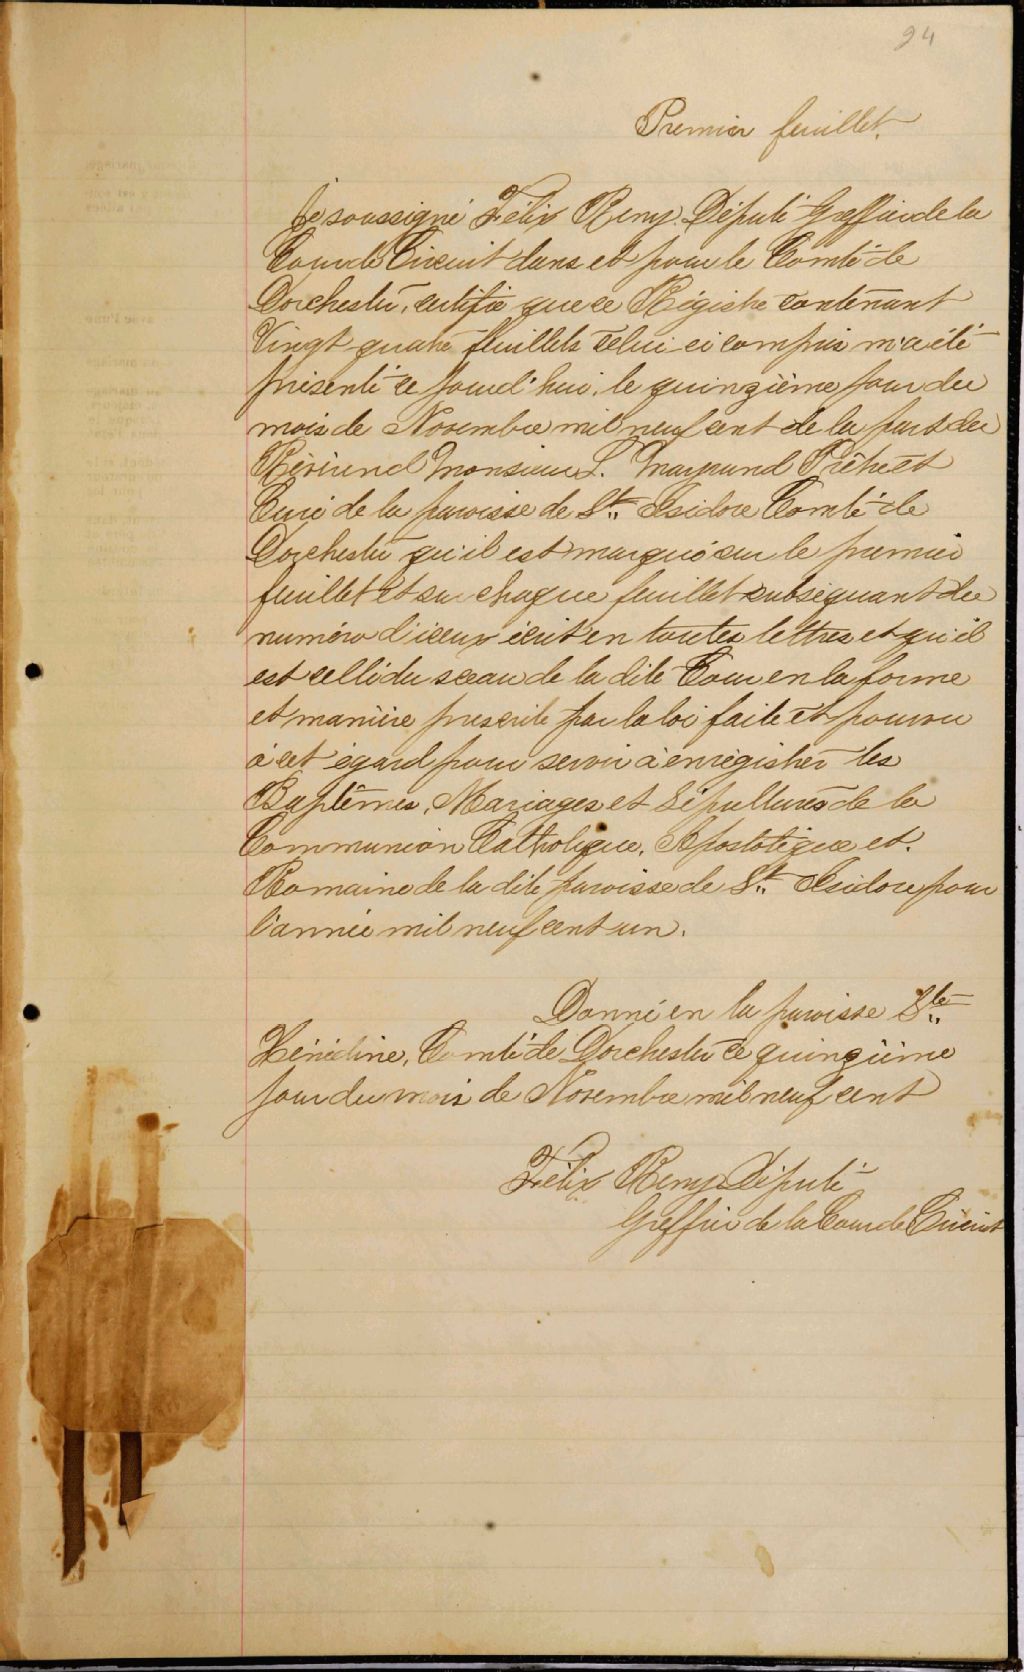 24
Premier feuillet.
Je soussigné Félix Remy Député Greffier de la
Cour de Circuit dans et pour le Comté de
Dorchester, certifie que ce Régistre contenant
Vingt quatre feuillets celui ci compris m'a été
présenté ce jourd'hui, le quinzième jour du
mois de Novembre mil neuf cent de la part du
Révérend Monsieur L. Marquand Prêtre et
Curé de la paroisse de St. Isidore Comté de
Dorchester qu'il est marqué sur le premier
feuillet et sur chaque feuillet subséquant du
numéro d'iceux écrit en toutes lettres et qu'il
est cellé du sceau de la dite Cour en la forme
et manière prescrite par la loi faite et pourvu
à cet égard pour servir à enrégistrer les
Baptêmes, Mariages et Sépultures de la
Communion Catholique, Apostolique et
Romaine de la dite paroisse de St. Isidore pour
l'année mil neuf cent un.
Donné en la paroisse Ste
Hénédine, Comté de Dorchester ce quinzième
jour du mois de Novembre mil neuf cent
Félix Remy Député
Greffier de la Cour de Circuit